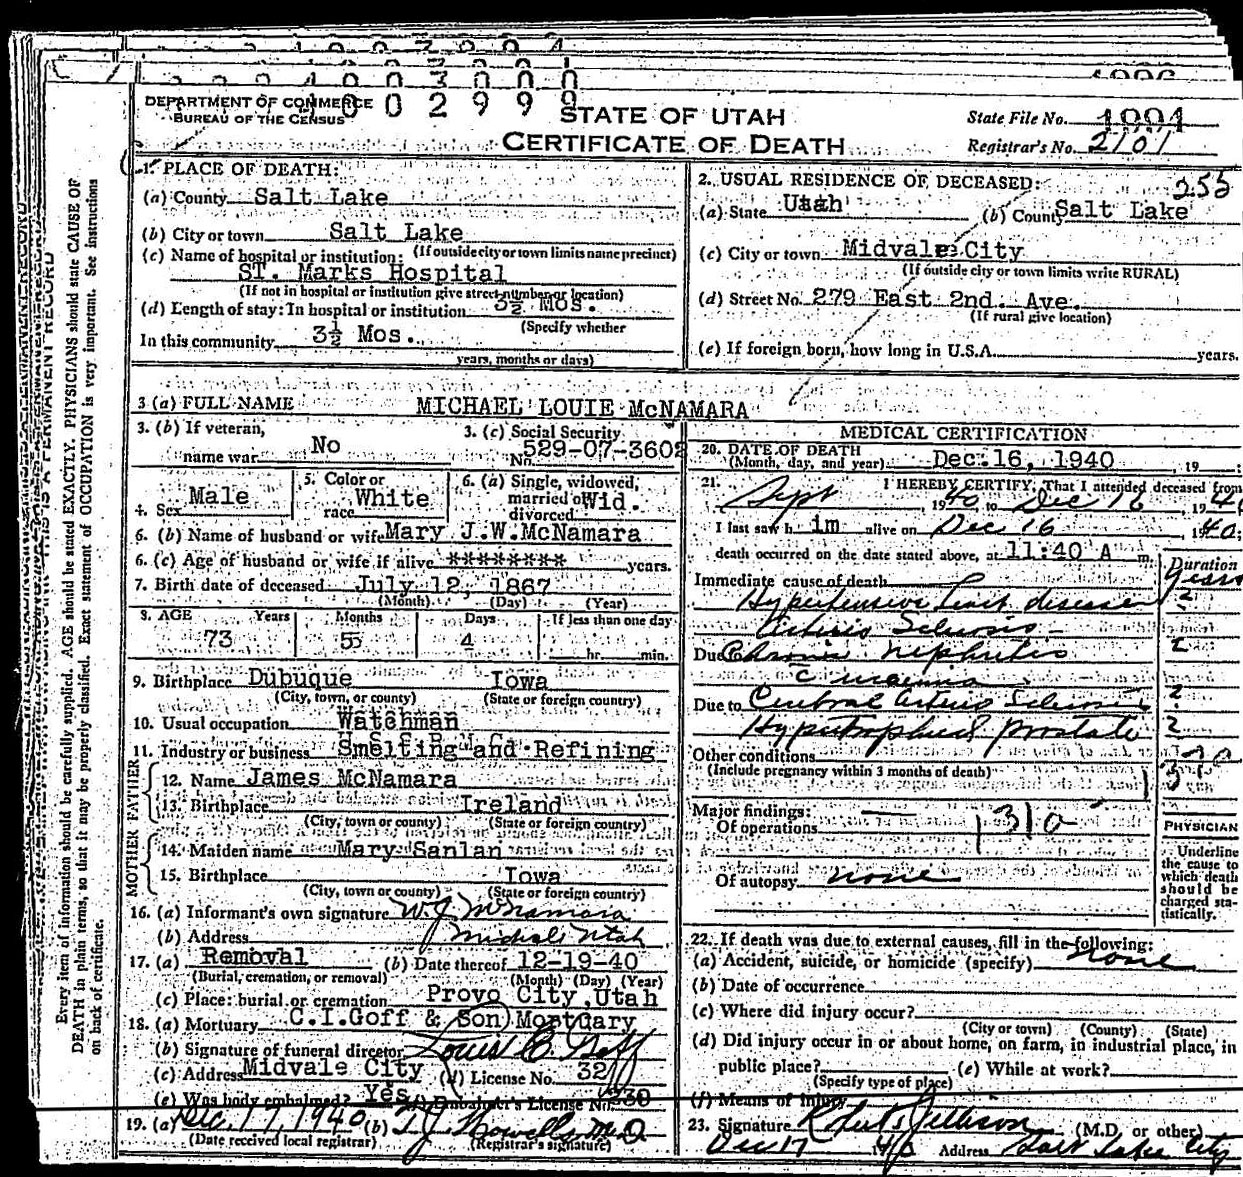 DEPARTMENT OF COMMERCE
BUREAU OF THE CENSUS
STATE OF UTAH
CERTIFICATE OF DEATH
State File No.
Registrar's No. 2101
1. PLACE OF DEATH:
(a) County Salt Lake
(b) City or town Salt Lake
(If outside city or town limits name precinct)
(c) Name of hospital or institution:
ST. Marks Hospital
(If not in hospital or institution give street number or location)
(d) Length of stay: In hospital or institution 3½ Mos.
(Specify whether
In this community 3½ Mos.
years, months or days)
2. USUAL RESIDENCE OF DECEASED: 255
(a) State Utah (b) County Salt Lake
(c) City or town Midvale City
(If outside city or town limits write RURAL)
(d) Street No. 279 East 2nd. Ave.
(If rural give location)
(e) If foreign born, how long in U.S.A. years.
3 (a) FULL NAME MICHAEL LOUIE McNAMARA
3. (b) If veteran, name war No
3. (c) Social Security No. 529-07-3602
4. Sex Male
5. Color or race White
6. (a) Single, widowed, married or divorced Wid.
6. (b) Name of husband or wife Mary J.W.McNamara
6. (c) Age of husband or wife if alive ******** years.
7. Birth date of deceased July 12, 1867
(Month) (Day) (Year)
8. AGE Years Months Days If less than one day
73 5 4 hr. min.
9. Birthplace Dubuque Iowa
(City, town, or county) (State or foreign country)
10. Usual occupation Watchman
11. Industry or business Smelting and Refining
FATHER
12. Name James McNamara
13. Birthplace Ireland
(City, town or county) (State or foreign country)
MOTHER
14. Maiden name Mary Sanlan
15. Birthplace Iowa
(City, town or county) (State or foreign country)
16. (a) Informant's own signature W.J. McNamara
(b) Address Utah
17. (a) Removal (b) Date thereof 12-19-40
(Burial, cremation, or removal) (Month) (Day) (Year)
(c) Place: burial or cremation Provo City, Utah
18. (a) Mortuary C.I.Goff & Son Mortuary
(b) Signature of funeral director Louis C. Goff
(c) Address Midvale City (d) License No. 32
(e) Was body embalmed? Yes (f) Embalmer's License No.
19. (a) Dec. 17, 1940 (b) T.J. Howells M.D.
(Date received local registrar) (Registrar's signature)
MEDICAL CERTIFICATION
20. DATE OF DEATH
(Month, day, and year) Dec. 16, 1940, 19
21. I HEREBY CERTIFY, That I attended deceased from
Sept 1940 to Dec 16 1940
I last saw him alive on Dec 16 1940;
death occurred on the date stated above, at 11:40 A m.
Duration
Immediate cause of death years
Hypertensive heart disease ?
Arterio Sclerosis
Due to Chronic nephritis ?
c uraemia
Due to Cerebral arterio Sclerosis ?
Hypertrophied prostate ?
Other conditions
(Include pregnancy within 3 months of death)
Major findings:
Of operations
Of autopsy none
PHYSICIAN
Underline the cause to which death should be charged statistically.
22. If death was due to external causes, fill in the following:
(a) Accident, suicide, or homicide (specify) none
(b) Date of occurrence
(c) Where did injury occur?
(City or town) (County) (State)
(d) Did injury occur in or about home, on farm, in industrial place, in
public place? (e) While at work?
(Specify type of place)
(f) Means of injury
23. Signature (M.D. or other)
Dec 17 40 Address Salt Lake City
Every item of information should be carefully supplied. AGE should be stated EXACTLY. PHYSICIANS should state CAUSE OF
DEATH in plain terms, so that it may be properly classified. Exact statement of OCCUPATION is very important. See instructions
on back of certificate.